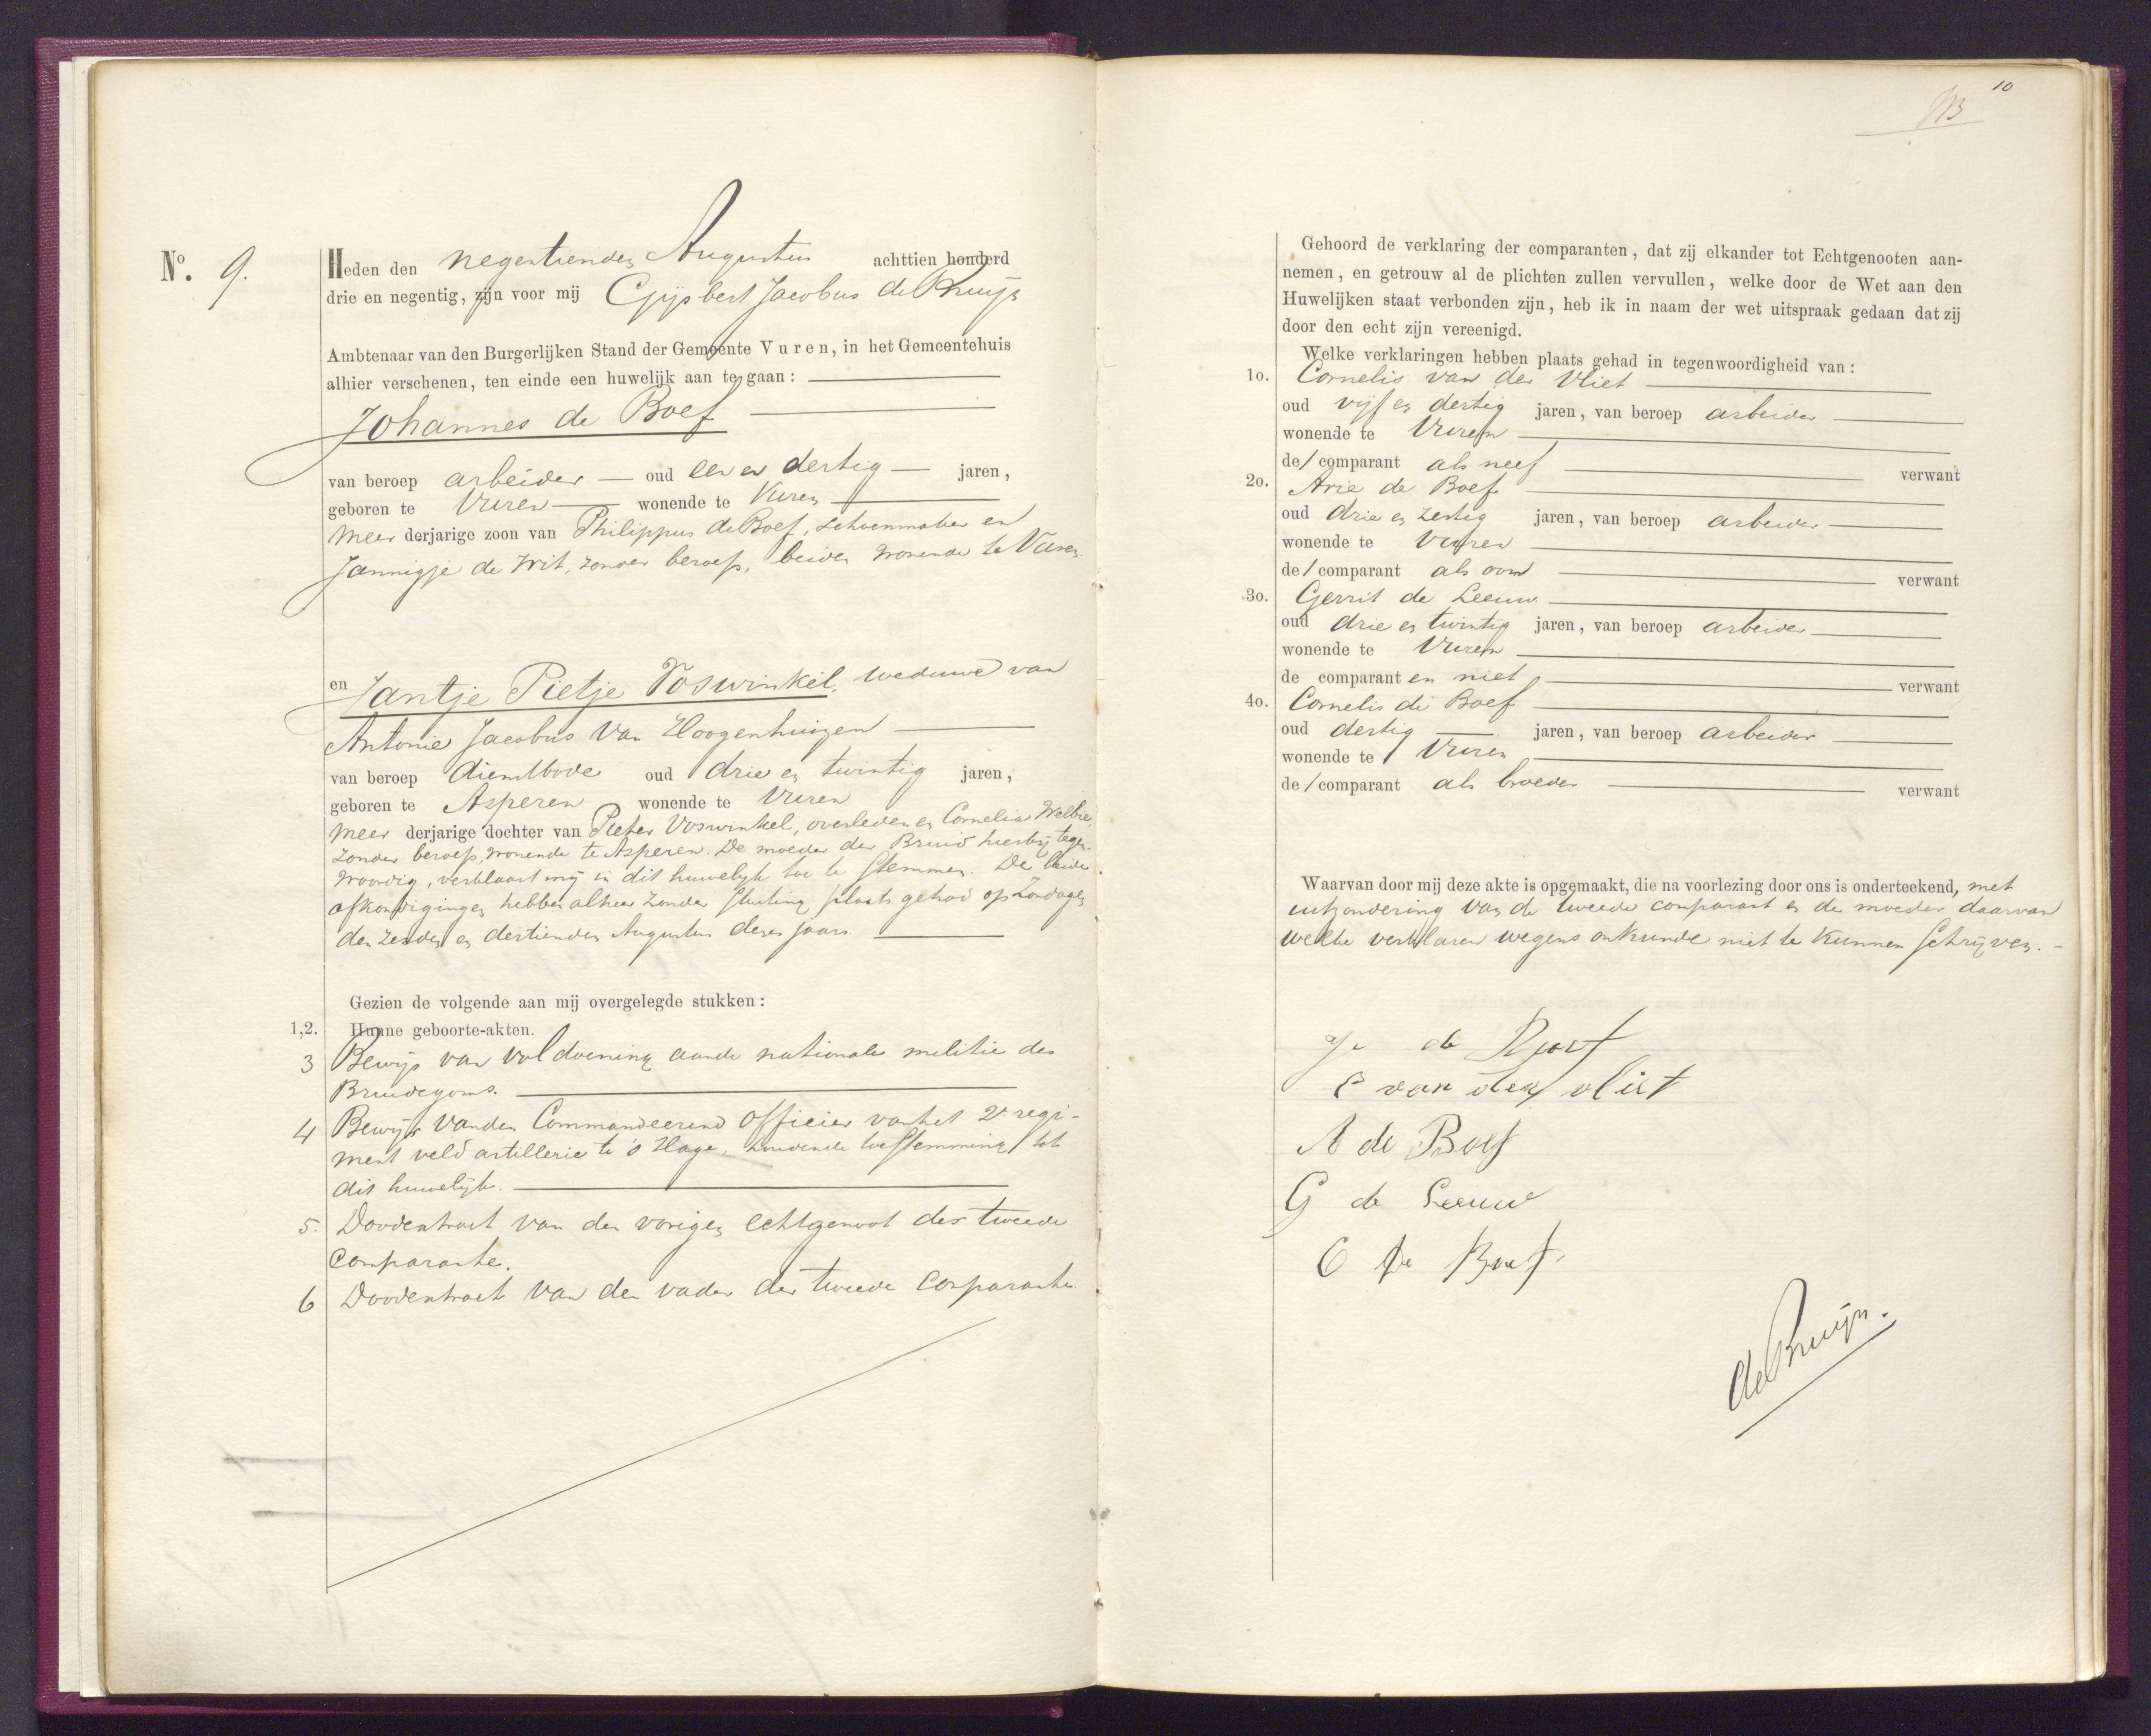 No. 9.
Heden den negentienden Augustus achttien honderd
drie en negentig, zijn voor mij Gijsbert Jacobus de Bruijn
Ambtenaar van den Burgerlijken Stand der Gemeente Vuren, in het Gemeentehuis
alhier verschenen, ten einde een huwelijk aan te gaan:
Johannes de Boef
van beroep arbeider oud een en dertig jaren,
geboren te Vuren wonende te Vuren
meer derjarige zoon van Philippus de Boef, schoenmaker en
Jannigje de Wit, zonder beroep, beiden wonende te Vuren
en Jantje Pietje Voswinkel, weduwe van
Antonie Jacobus van Hoogenhuizen
van beroep dienstbode oud drie en twintig jaren,
geboren te Asperen wonende te Vuren
meer derjarige dochter van Pieter Voswinkel, overleden en Cornelia
zonder beroep, wonende te Asperen. De moeder der Bruid hierbij tegen-
woordig, verklaart mij in dit huwelijk toe te stemmen. De beide
afkondigingen hebben alhier zonder stuiting plaats gehad op Zondagen
den zesden en dertienden Augustus dezes jaars
Gezien de volgende aan mij overgelegde stukken:
1,2. Hunne geboorte-akten.
3 Bewijs van voldoening aan de nationale militie des
Bruidegoms.
4 Bewijs van den Commandeerend Officier van het 2e regi-
ment veld artillerie te 's Hage, houdende toestemming tot
dit huwelijk.
5. Doodextract van den vorigen echtgenoot der tweede
Comparante.
6 Doodextract van den vader der tweede Comparante
10
Gehoord de verklaring der comparanten, dat zij elkander tot Echtgenooten aan-
nemen, en getrouw al de plichten zullen vervullen, welke door de Wet aan den
Huwelijken staat verbonden zijn, heb ik in naam der wet uitspraak gedaan dat zij
door den echt zijn vereenigd.
Welke verklaringen hebben plaats gehad in tegenwoordigheid van:
1o. Cornelis van der Vliet
oud vijf en dertig jaren, van beroep arbeider
wonende te Vuren
de comparant als neef verwant
2o. Arie de Boef
oud drie en zestig jaren, van beroep arbeider
wonende te Vuren
de comparant als oom verwant
3o. Gerrit de Leeuw
oud drie en twintig jaren, van beroep arbeider
wonende te Vuren
de comparanten niet verwant
4o. Cornelis de Boef
oud dertig jaren, van beroep arbeider
wonende te Vuren
de comparant als broeder verwant
Waarvan door mij deze akte is opgemaakt, die na voorlezing door ons is onderteekend, met
uitzondering van de tweede comparant en de moeder daarvan
welke verklaren wegens onkunde niet te kunnen schrijven.
de Boef
C van der vliet
A de Boef
G de Leeuw
C de Boef
de Bruijn.